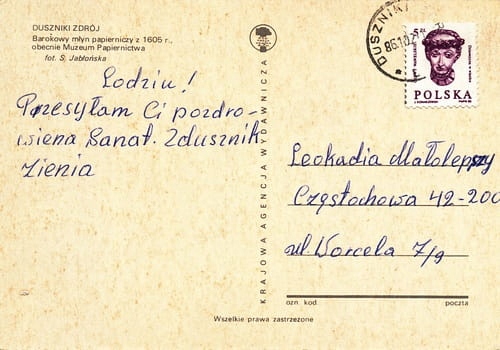 DUSZNIKI ZDRÓJ
Barokowy młyn papierniczy z 1605 r.,
obecnie Muzeum Papiernictwa
fot. S. Jabłońska
Lodziu!
Przesyłam Ci pozdro-
wiena Sanat. Zdusznik
Zienia
KRAJOWA AGENCJA WYDAWNICZA
DUSZNIKI
5 zł
POLSKA
Leokadia Małolepszy
Częstochowa 42-200
ul. Worcela 7/9
ozn kod
poczta
Wszelkie prawa zastrzeżone